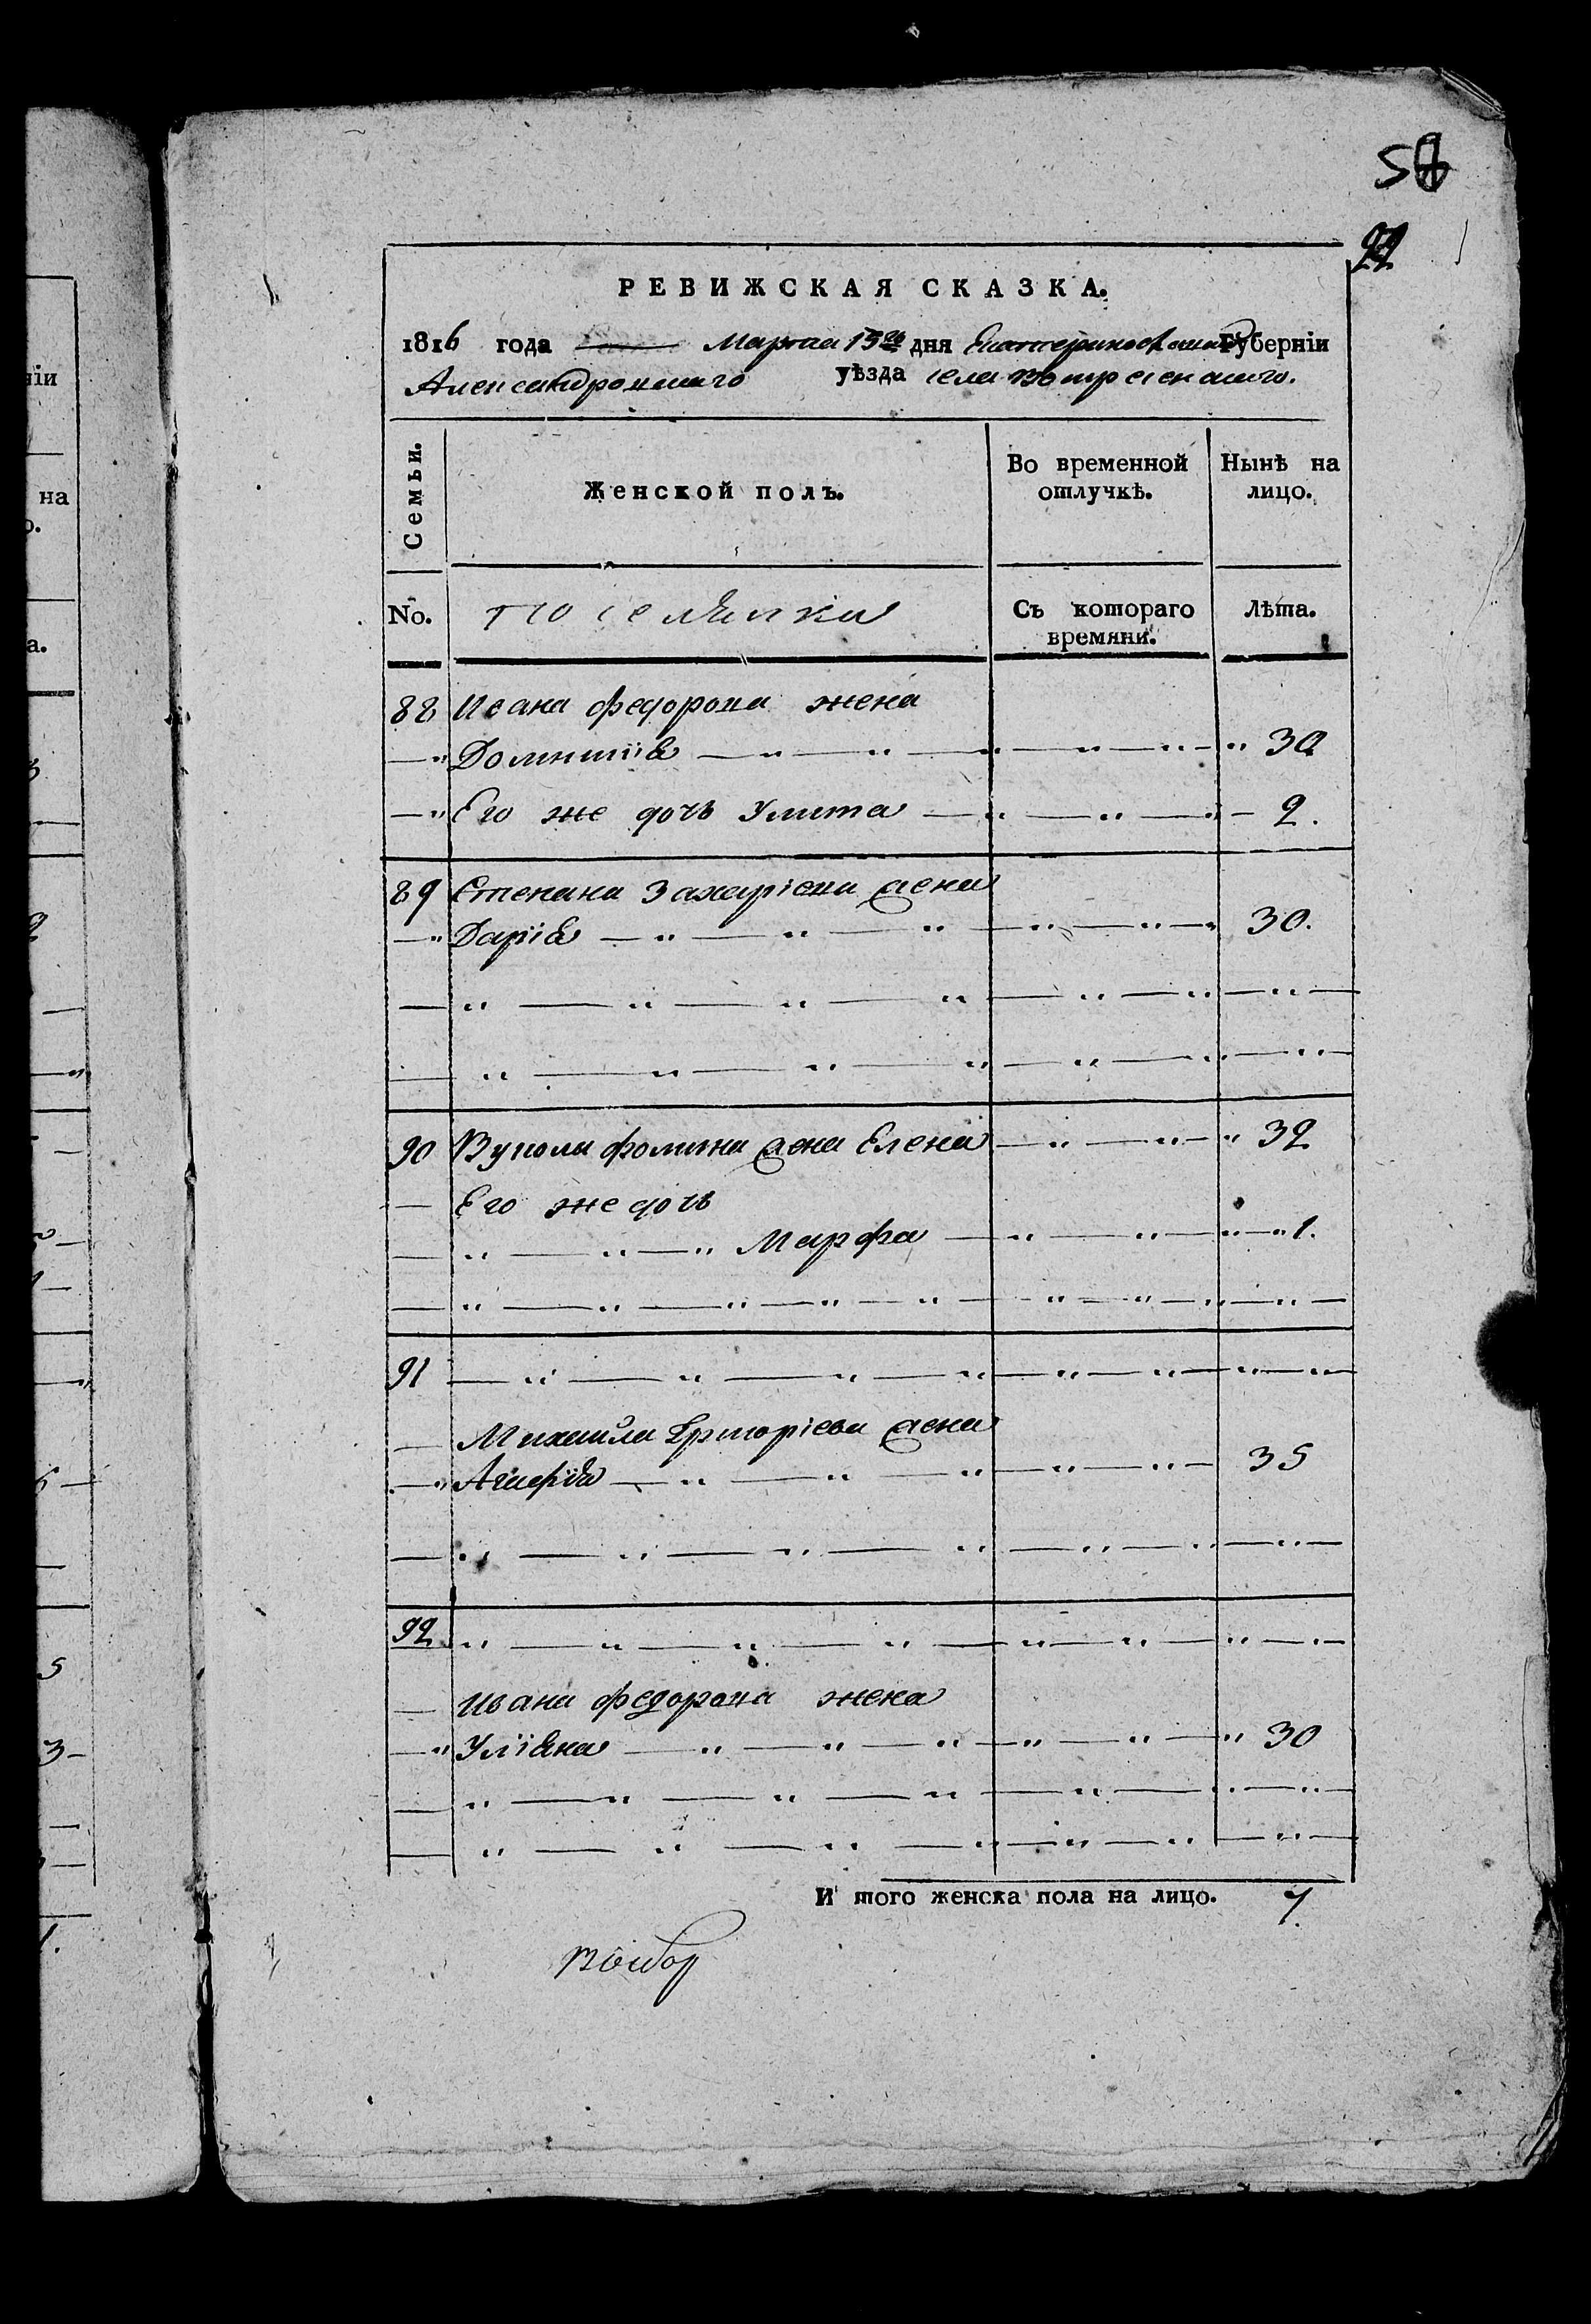 22
РЕВИЖСКАЯ СКАЗКА.
1816 года Марта 15го дня Екатеринославской Губерніи
Александровскаго уѣзда села Вотресенскаго.
Семьи. Женской полъ. Во временной отлучкѣ. Нынѣ на лицо.
No. Поселянки Съ котораго времяни. Лѣта.
88 Ивана федорова жена
—„ Домникія — „ — „ — „ — „ — „ — „ 30
—„ Его же дочь Улита — „ — „ — „ — 2.
89 Степана Захаріева жена
—„ Дарія — „ — „ — „ — „ — „ — „ 30.
— „ — „ — „ — „ — „ — „ — „ —
— „ — „ — „ — „ — „ — „ — „ —
90 Вукола фомина жена Елена — „ — „ — „ 32
— Его же дочь
— „ — „ — „ Марфа — „ — „ — „ — „ 1.
— „ — „ — „ — „ — „ — „ — „ — „ — „ —
91 — „ — „ — „ — „ — „ — „ — „ — „
— Михаила Григоріева жена
—„ Агафія — „ — „ — „ — „ — „ — 35
— „ — „ — „ — „ — „ — „ — „ —
92 „ — „ — „ — „ — „ — „ — „ — „
— Ивана федорова жена
—„ Уліяна — „ — „ — „ — „ — „ — „ 30
— „ — „ — „ — „ — „ — „ — „
— „ — „ — „ — „ — „ — „ — „ —
И того женска пола на лицо. 7.